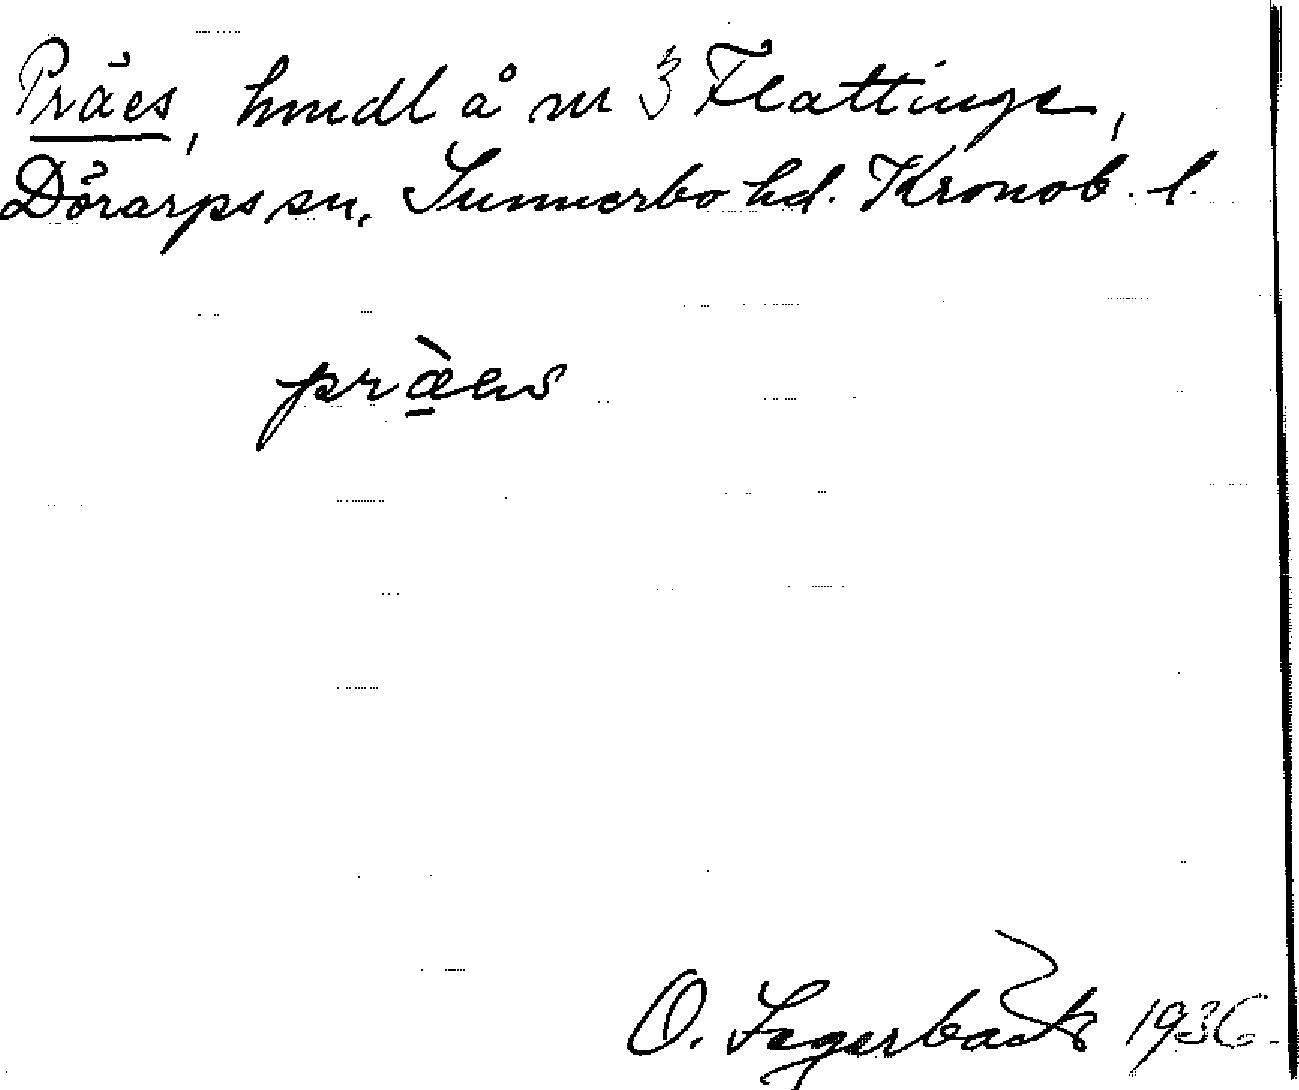 Präes, hmdl å nr 3 Flattinge,
Dörarps sn, Sunnerbo hd. Kronob. l.
præ̀es
O. Lagerbäck 1936.